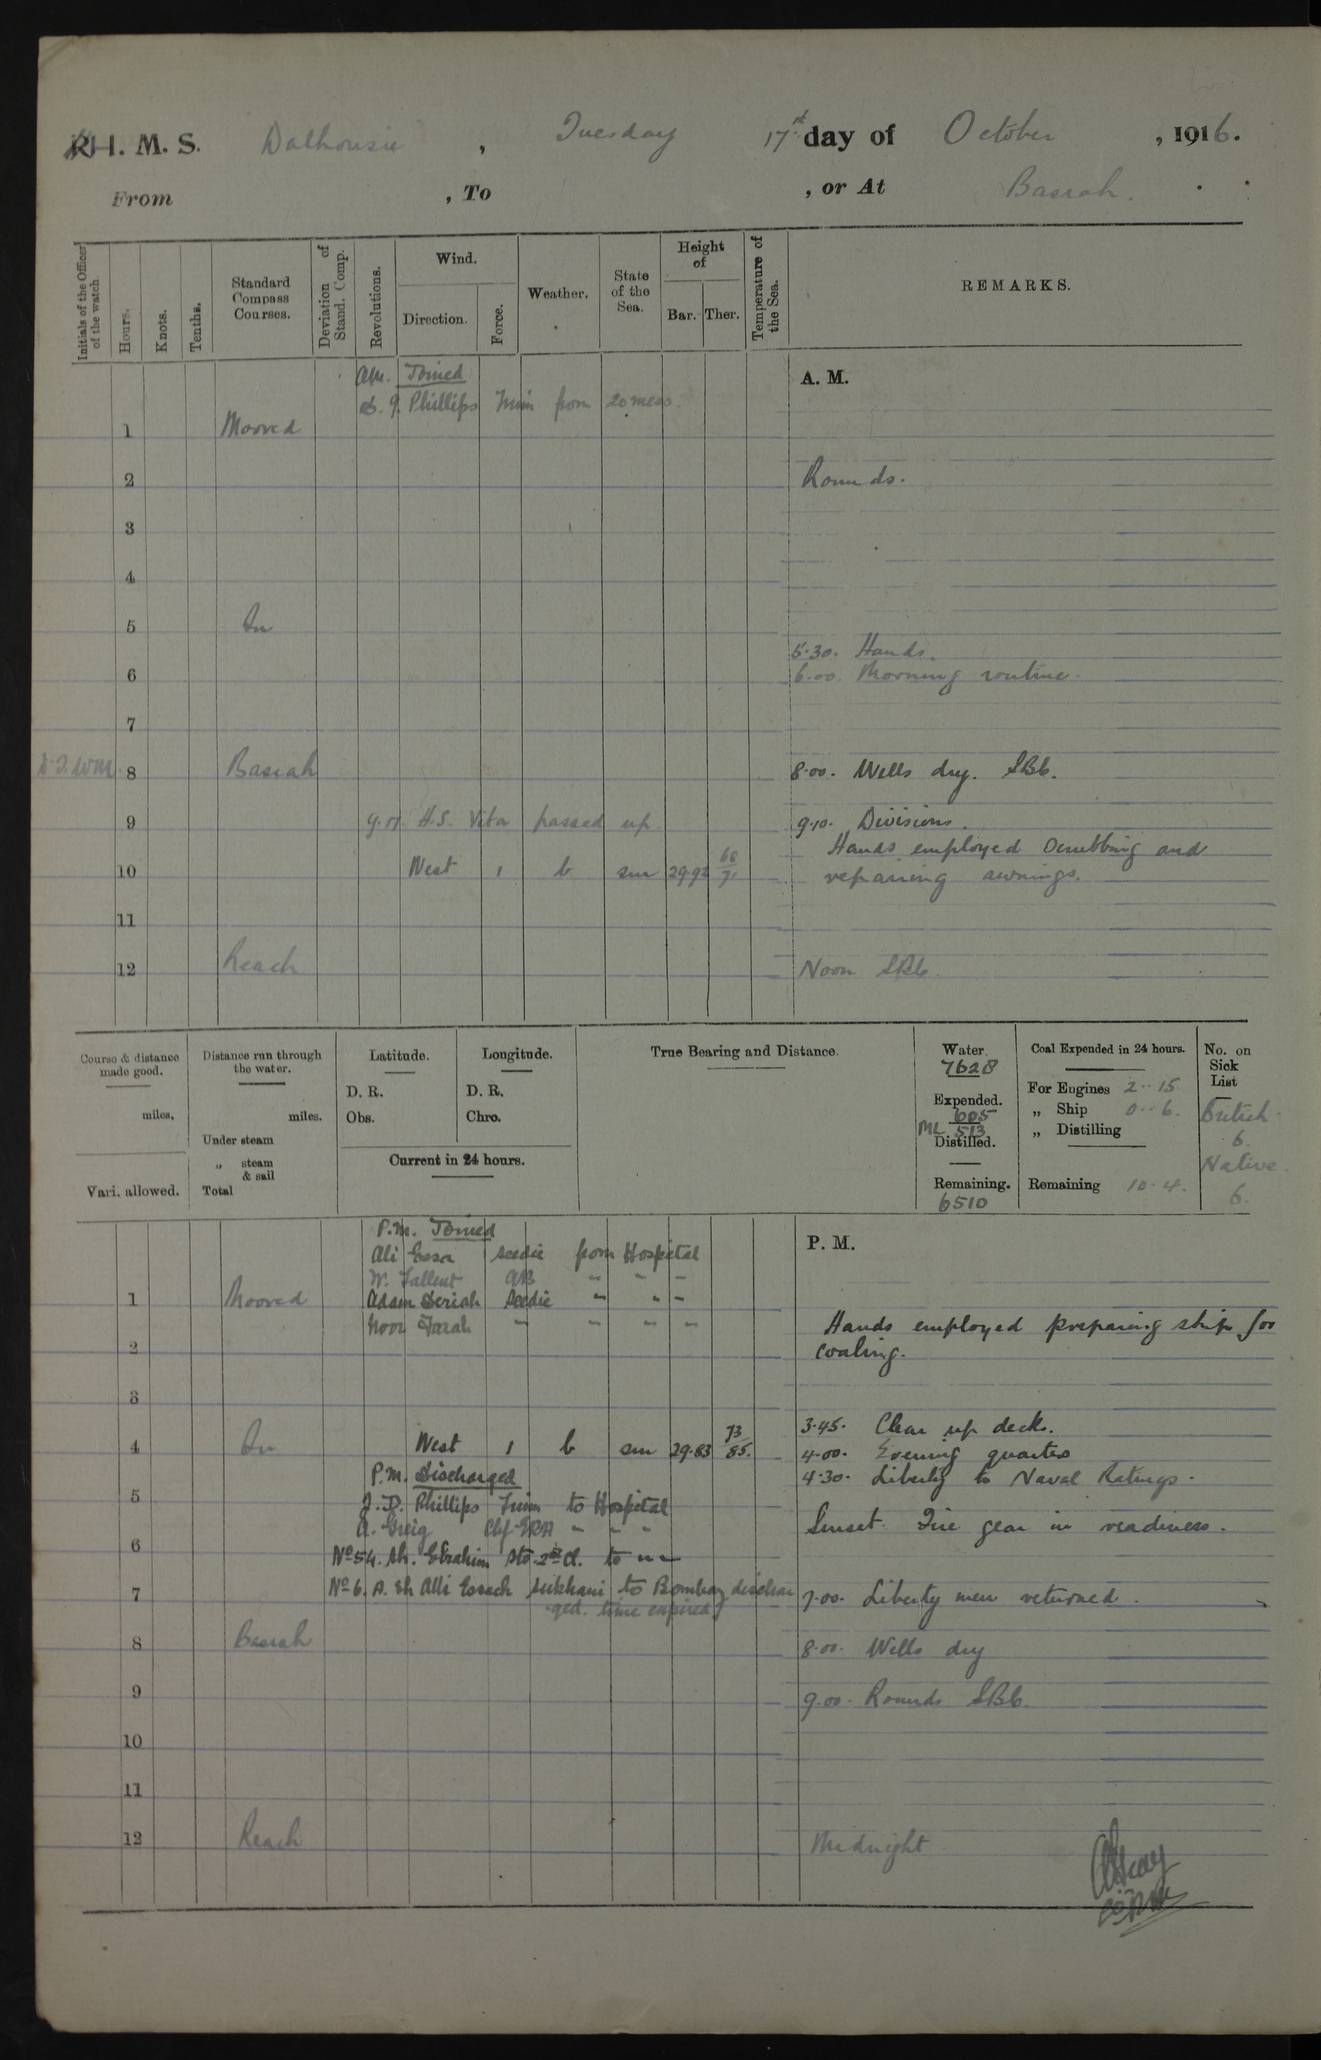 R. I. M. S. Dalhousie, Tuesday 17th day of October, 1916.
From , To , or At Basrah.
Initials of the Officer of the watch.
Hours.
Knots.
Tenths.
Standard Compass Courses.
Deviation of Stand. Comp.
Revolutions.
Wind.
Direction.
Force.
Weather.
State of the Sea.
Height of
Bar. Ther.
Temperature of the Sea.
REMARKS.
AM. Joined
Phillips from 20 mess.
A. M.
1 Moored
2 Rounds.
3
4
5 In
5.30. Hands.
6 6.00 Morning routine.
7
8 Basrah 8.00. Wells dry. SBb.
9 H.S. Vita passed up 9.10. Divisions.
Hands employed Scrubbing and
10 West 1 b sm 29.92 68/71 repairing awnings.
11
12 Reach Noon SBb
Course & distance made good.
miles.
Vari. allowed.
Distance run through the water.
miles.
Under steam
„ steam & sail
Total
Latitude.
D. R.
Obs.
Longitude.
D. R.
Chro.
Current in 24 hours.
True Bearing and Distance.
Water
7628
Expended.
605
ML 513
Distilled.
Remaining.
6510
Coal Expended in 24 hours.
For Engines 2 .. 15
„ Ship 0 .. 6.
„ Distilling
Remaining 10 . 4.
No. on Sick List
British
6.
Native
6.
P.M. Joined
P. M.
Ali Essa seedie from Hospital
W. Tallent AB " " "
1 Moored Adam Seriah seedie " " "
Noor Farah " " " "
Hands employed preparing ship for
2 coaling.
3
3.45. Clear up decks.
4 In West 1 b sm 29.83 73/85. 4.00. Evening quarters
P.M. Discharged 4.30. Liberty to Naval Ratings.
5 J. D. Phillips to Hospital
A. Greig Chf. ERA " " " Sunset. Fire gear in readiness.
6 No 54. Sh. Ebrahim Sto. 2nd Cl. to " "
7 No 6. A. Sh Alli Essack sukhani to Bombay dischar 7.00. Liberty men returned.
ged. time expired
8 Basrah 8.00. Wells dry
9 9.00. Rounds SBb.
10
11
12 Reach Midnight